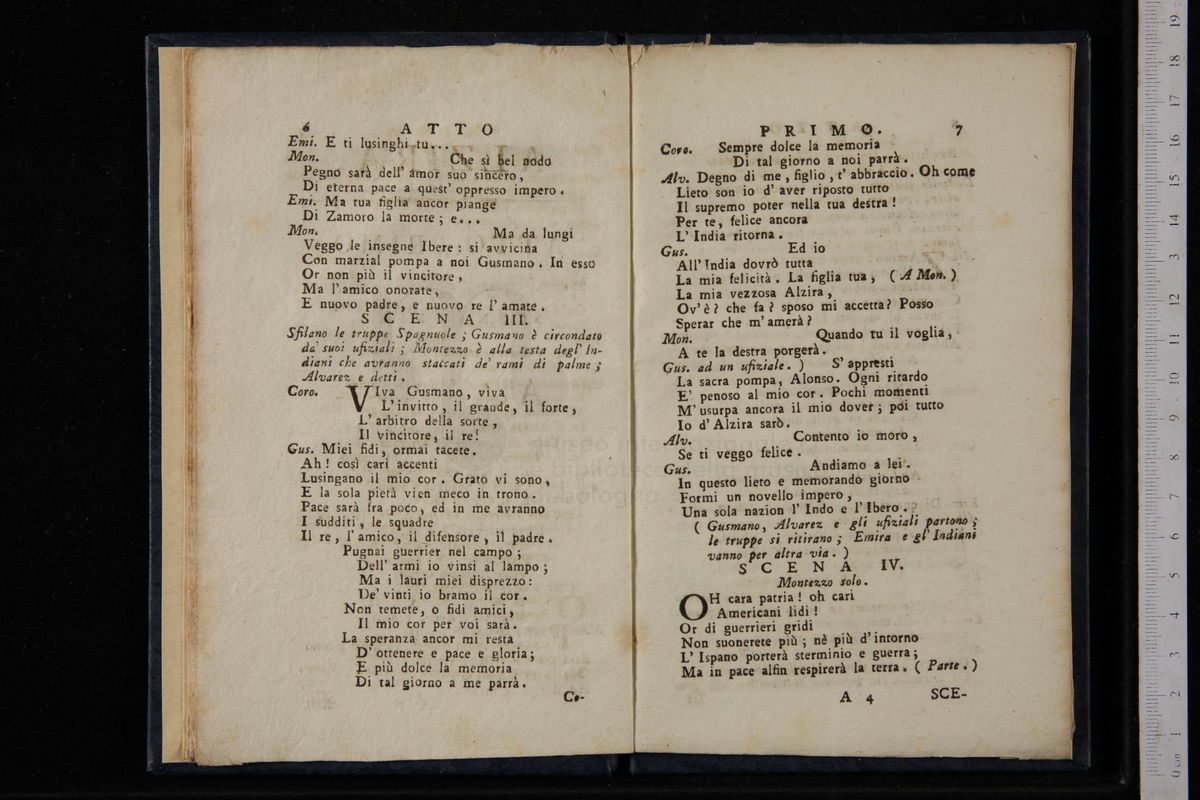 6 ATTO
Emi. E ti lusinghi tu...
Mon. Che sì bel nodo
Pegno sarà dell' amor suo sincero,
Di eterna pace a quest' oppresso impero.
Emi. Ma tua figlia ancor piange
Di Zamoro la morte; e...
Mon. Ma da lungi
Veggo le insegne Ibere: si avvicina
Con marzial pompa a noi Gusmano. In esso
Or non più il vincitore,
Ma l'amico onorate,
E nuovo padre, e nuovo re l'amate.
SCENA III.
Sfilano le truppe Spagnuole; Gusmano è circondato
da' suoi ufiziali; Montezzo è alla testa degl' In-
diani che avranno staccati de' rami di palme;
Alvarez e detti.
Coro. VIva Gusmano, viva
L'invitto, il grande, il forte,
L'arbitro della sorte,
Il vincitore, il re!
Gus. Miei fidi, ormai tacete.
Ah! così cari accenti
Lusingano il mio cor. Grato vi sono,
E la sola pietà vien meco in trono.
Pace sarà fra poco, ed in me avranno
I sudditi, le squadre
Il re, l'amico, il difensore, il padre.
Pugnai guerrier nel campo;
Dell' armi io vinsi al lampo;
Ma i lauri miei disprezzo:
De' vinti io bramo il cor.
Non temete, o fidi amici,
Il mio cor per voi sarà.
La speranza ancor mi resta
D'ottenere e pace e gloria;
E più dolce la memoria
Di tal giorno a me parrà.
Co-
PRIMO. 7
Coro. Sempre dolce la memoria
Di tal giorno a noi parrà.
Alv. Degno di me, figlio, t'abbraccio. Oh come
Lieto son io d'aver riposto tutto
Il supremo poter nella tua destra!
Per te, felice ancora
L'India ritorna.
Gus. Ed io
All' India dovrò tutta
La mia felicità. La figlia tua, (A Mon.)
La mia vezzosa Alzira,
Ov'è? che fa? sposo mi accetta? Posso
Sperar che m'amerà?
Mon. Quando tu il voglia,
A te la destra porgerà.
Gus. ad un ufiziale.) S'appresti
La sacra pompa, Alonso. Ogni ritardo
E' penoso al mio cor. Pochi momenti
M'usurpa ancora il mio dover; poi tutto
Io d'Alzira sarò.
Alv. Contento io moro,
Se ti veggo felice.
Gus. Andiamo a lei.
In questo lieto e memorando giorno
Formi un novello impero,
Una sola nazion l'Indo e l'Ibero.
(Gusmano, Alvarez e gli ufiziali partono;
le truppe si ritirano; Emira e gl' Indiani
vanno per altra via.)
SCENA IV.
Montezzo solo.
OH cara patria! oh cari
Americani lidi!
Or di guerrieri gridi
Non suonerete più; nè più d'intorno
L'Ispano porterà sterminio e guerra;
Ma in pace alfin respirerà la terra. (Parte.)
A 4 SCE-
0 cm 1 2 3 4 5 6 7 8 9 10 11 12 13 14 15 16 17 18 19